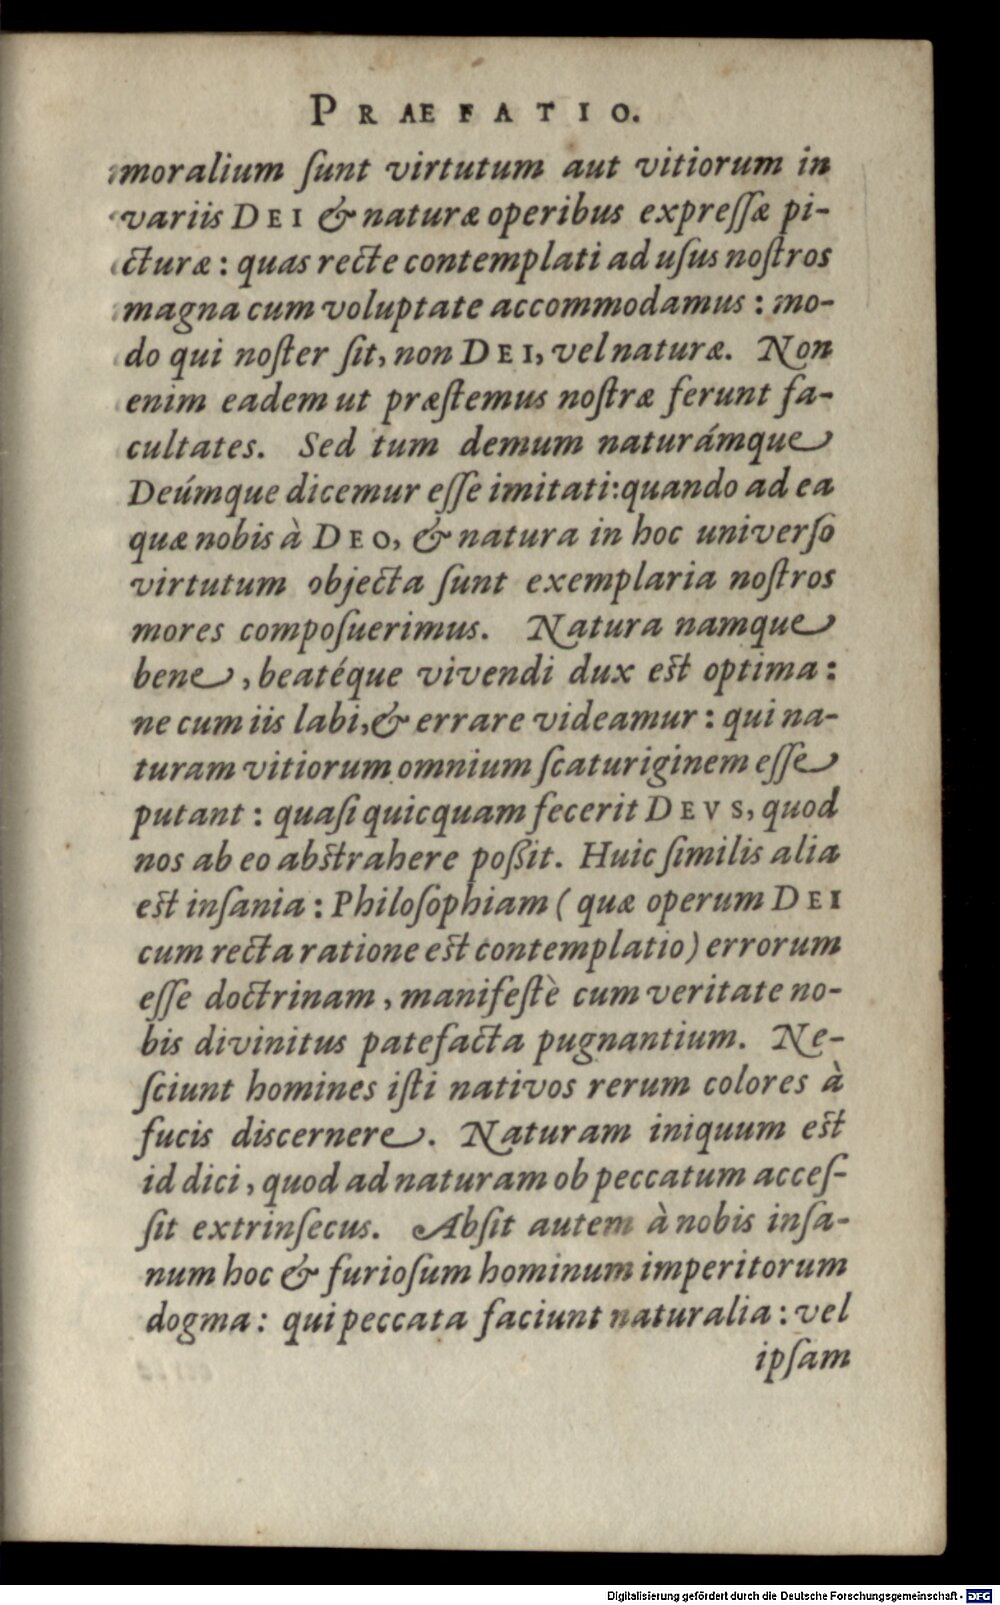 PRAEFATIO.
moralium ſunt virtutum aut vitiorum in
variis DEI & naturæ operibus expreſſæ pi-
cturæ: quas recte contemplati ad uſus noſtros
magna cum voluptate accommodamus: mo-
do qui noſter ſit, non DEI, vel naturæ. Non
enim eadem ut præſtemus noſtræ ferunt fa-
cultates. Sed tum demum naturámque
Deúmque dicemur eſſe imitati: quando ad ea
quæ nobis à DEO, & natura in hoc univerſo
virtutum objecta ſunt exemplaria noſtros
mores compoſuerimus. Natura namque
bene, beatéque vivendi dux est optima:
ne cum iis labi, & errare videamur: qui na-
turam vitiorum omnium ſcaturiginem eſſe
putant: quaſi quicquam fecerit DEVS, quod
nos ab eo abstrahere poßit. Huic ſimilis alia
est inſania: Philoſophiam (quæ operum DEI
cum recta ratione est contemplatio) errorum
eſſe doctrinam, manifeſtè cum veritate no-
bis divinitus patefacta pugnantium. Ne-
ſciunt homines iſti nativos rerum colores à
fucis discernere. Naturam iniquum est
id dici, quod ad naturam ob peccatum acceſ-
ſit extrinſecus. Abſit autem à nobis inſa-
num hoc & furioſum hominum imperitorum
dogma: qui peccata faciunt naturalia: vel
ipſam
Digitalisierung gefördert durch die Deutsche Forschungsgemeinschaft - DFG